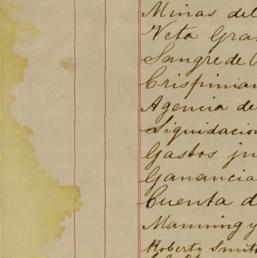 Minas del
Veta Gra
Sangre de
Crispinian
Agencia de
Liquidacion
Gastos ju
Ganancia
Cuenta d
Manning y
Roberto Smith